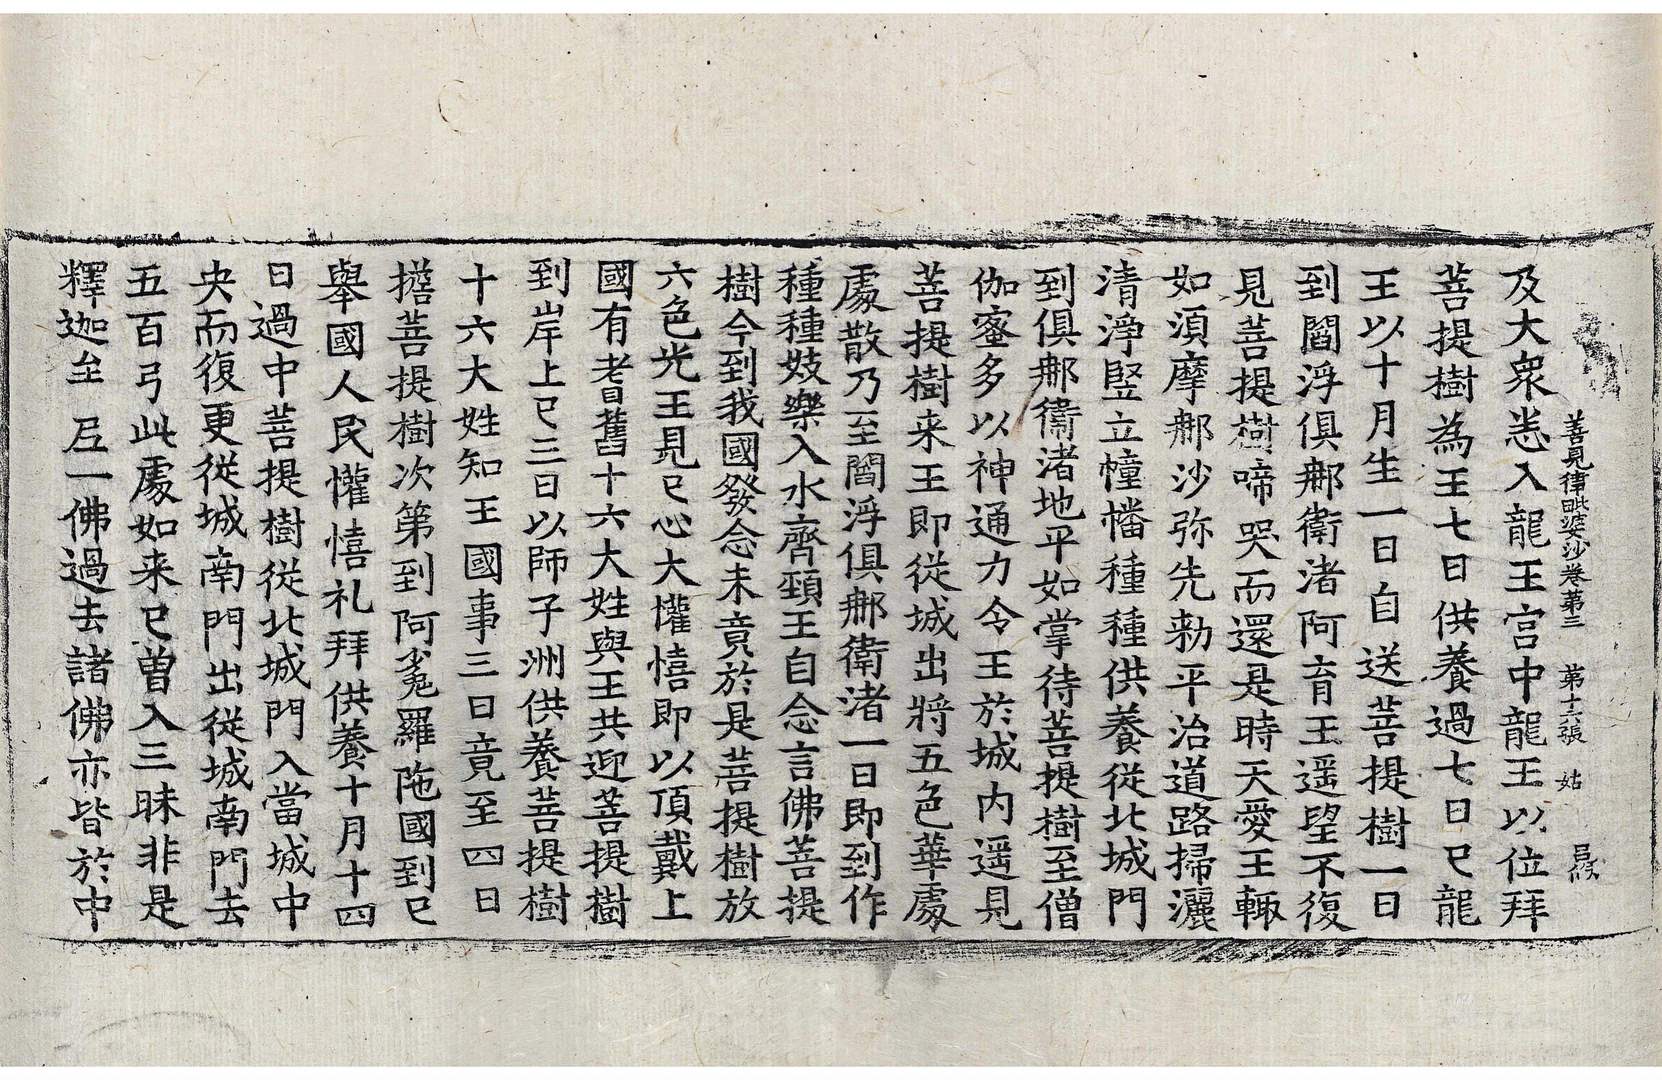 善見律毗婆沙卷第三 第十六張 姑
及大衆恙入龍王宫中龍王以位拜
菩提樹為王七日供養過七日已龍
王以十月生一日自送菩提樹一日
到閻浮俱那衛渚阿育王遥望不復
見菩提樹啼哭而還是時天愛王輙
如湏摩那沙弥先勑平治道路掃灑
清淨竪立幢幡種種供養從北城門
到俱那衛渚地平如掌待菩提樹至僧
伽蜜多以神通力令王於城内遥見
菩提樹来王即從城出將五色華處
處散乃至閻浮俱那衛渚一日即到作
種種妓樂入水齊頸王自念言佛菩提
樹今到我國發念未竟於是菩提樹放
六色光王見已心大懽憘即以頂戴上
國有耆舊十六大姓與王共迎菩提樹
到岸上已三日以師子洲供養菩提樹
十六大姓知王國事三日竟至四日
擔菩提樹次第到阿㝹羅陁國到已
舉國人民懽憘礼拜供養十月十四
日過中菩提樹從北城門入當城中
央而復更從城南門出從城南門去
五百弓此處如来已曽入三昧非是
釋迦至尼一佛過去諸佛亦皆於中